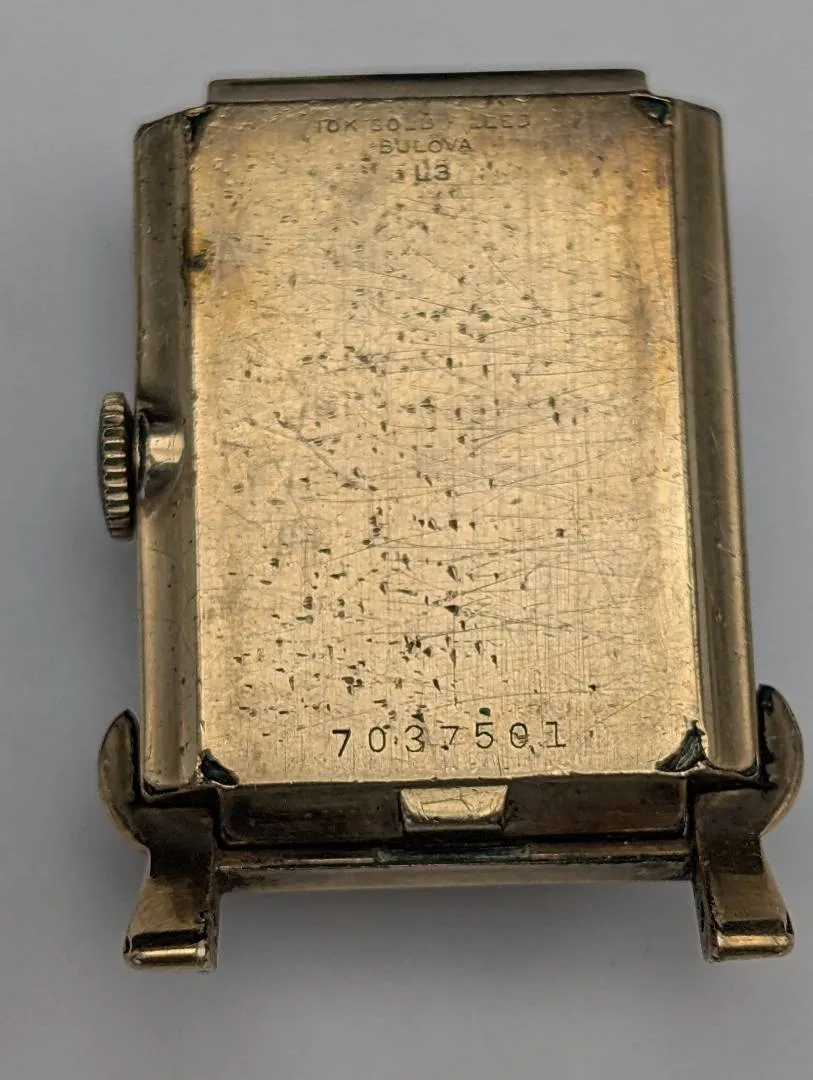 10K GOLD FILLED
BULOVA
L3
7037501